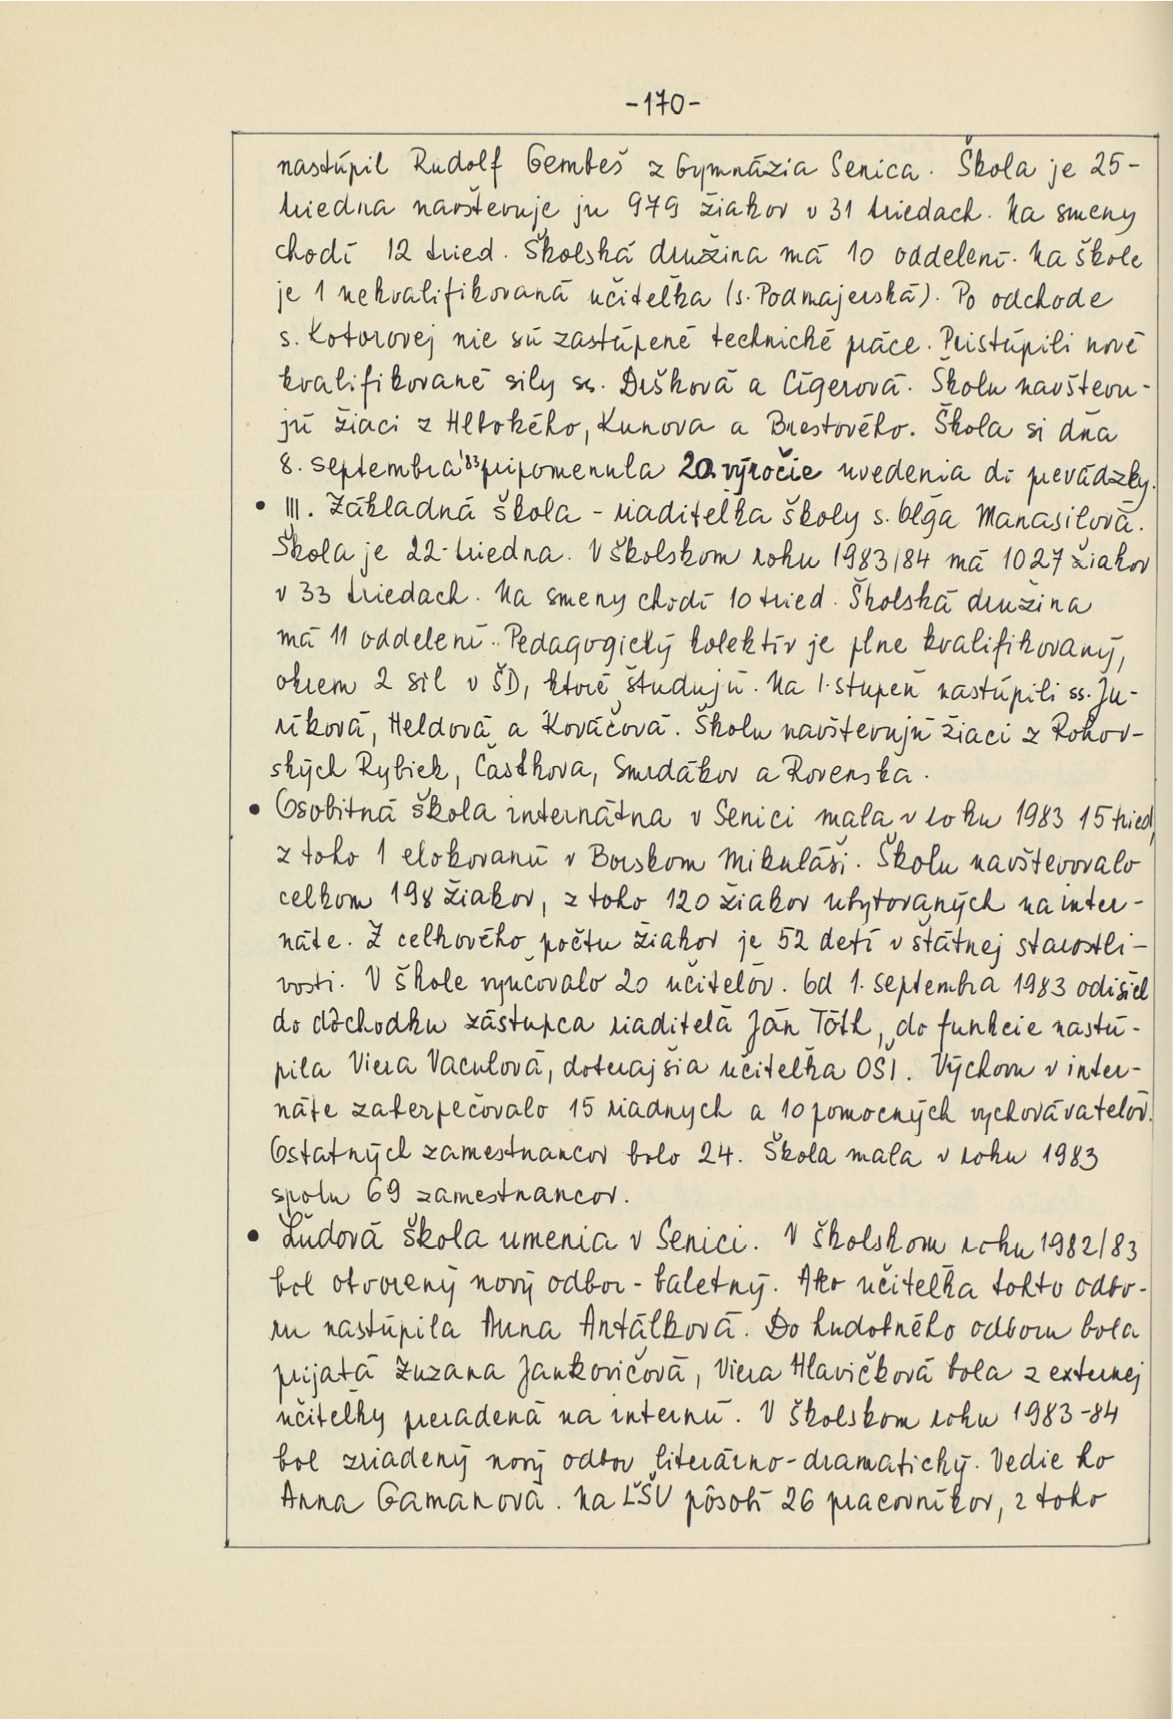 -170-
nastúpil Rudolf Gembeš z Gymnázia Senica. Škola je 25-
triedna navštevuje ju 979 žiakov v 31 triedach. Na smeny
chodí 12 tried. Školská družina má 10 oddelení. Na škole
je 1 nekvalifikovaná učiteľka (s. Podmajerská). Po odchode
s. Kotorovej nie sú zastúpené technické práce. Pristúpili nové
kvalifikované sily ss. Dršková a Cígerová. Školu navštevu-
jú žiaci z Hlbokého, Kunova a Brestového. Škola si dňa
8. septembra '83 pripomenula 20. výročie uvedenia do prevádzky.
• III. Základná škola - riaditeľka školy s. Oľga Manasilová.
Škola je 22-triedna. V školskom roku 1983/84 má 1027 žiakov
v 33 triedach. Na smeny chodí 10 tried. Školská družina
má 11 oddelení. Pedagogický kolektív je plne kvalifikovaný,
okrem 2 síl v ŠD, ktoré študujú. Na I. stupeň nastúpili ss. Ju-
ríková, Heldová a Kováčová. Školu navštevujú žiaci z Rohov-
ských Rybiek, Častkova, Smrdákov a Rovenska.
• Osobitná škola internátna v Senici mala v roku 1983 15 tried,
z toho 1 elokovanú v Borskom Mikuláši. Školu navštevovalo
celkom 198 žiakov, z toho 120 žiakov ubytovaných na inter-
náte. Z celkového počtu žiakov je 52 detí v štátnej starostli-
vosti. V škole vyučovalo 20 učiteľov. Od 1. septembra 1983 odišiel
do dôchodku zástupca riaditeľa Ján Tóth, do funkcie nastú-
pila Viera Vaculová, doterajšia učiteľka OŠI. Výchovu v inter-
náte zabezpečovalo 15 riadnych a 10 pomocných vychovávateľov.
Ostatných zamestnancov bolo 24. Škola mala v roku 1983
spolu 69 zamestnancov.
• Ľudová škola umenia v Senici. V školskom roku 1982/83
bol otvorený nový odbor - baletný. Ako učiteľka tohto odbo-
ru nastúpila Anna Antálková. Do hudobného odboru bola
prijatá Zuzana Jankovičová, Viera Hlavičková bola z externej
učiteľky preradená na internú. V školskom roku 1983-84
bol zriadený nový odbor literárno-dramatický. Vedie ho
Anna Gamanová. Na ĽŠU pôsobí 26 pracovníkov, z toho